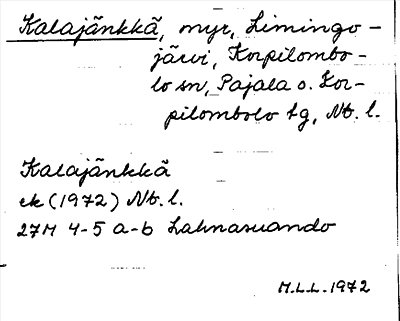 Kalajänkkä, myr, Limingo-
järvi, Korpilombo-
lo sn, Pajala o. Kor-
pilombolo tg, Nb. l.
Kalajänkkä
ek (1972) Nb. l.
27M 4-5 a-b Lahnasuando
M.L.L. 1972